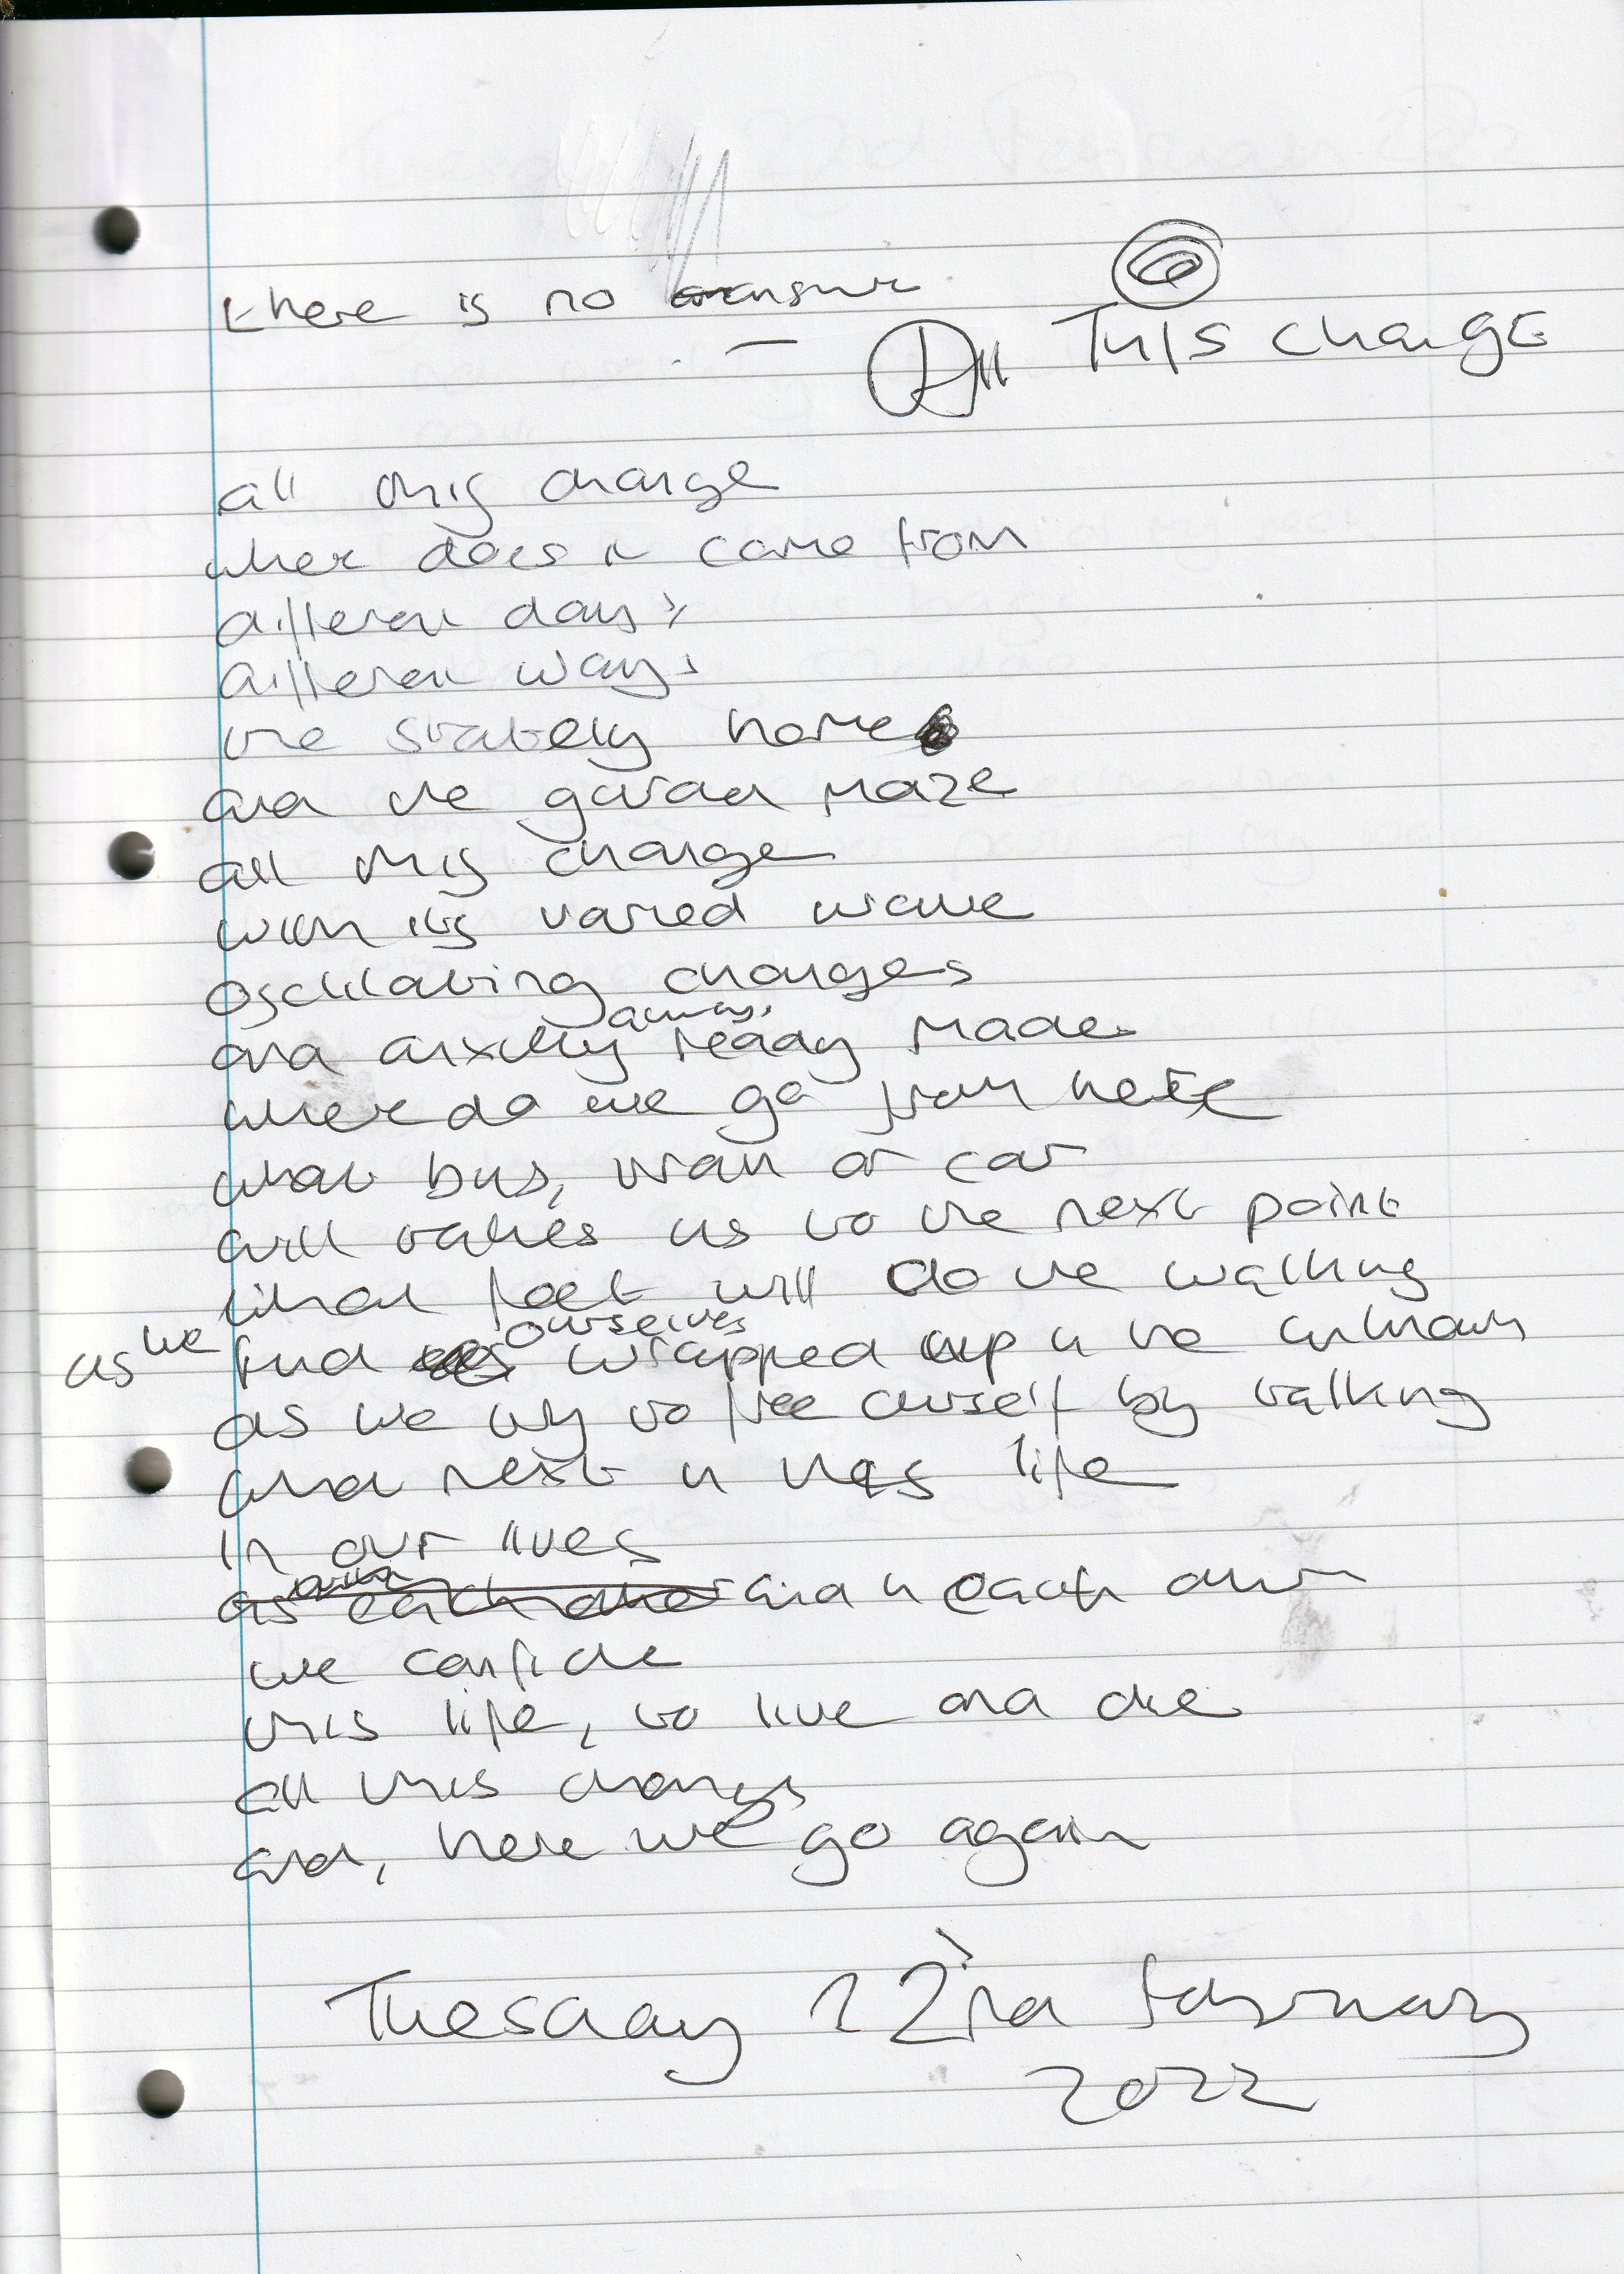 there is no answer
All This change
all this change
where does it come from
different days
different ways
the stately home
and the garden maze
all this change
with its varied wave
oscillating changes
and anxiety always ready made
where do we go from here
what bus, train or car
will takes us to the next point
what feet will do the walking
as we find ourselves wrapped up in the
as we try to free ourself by talking
what next in this life
in our lives
and in each other
we confide
this life, to live and die
all this change
and, here we go again
Tuesday 22nd February
2022